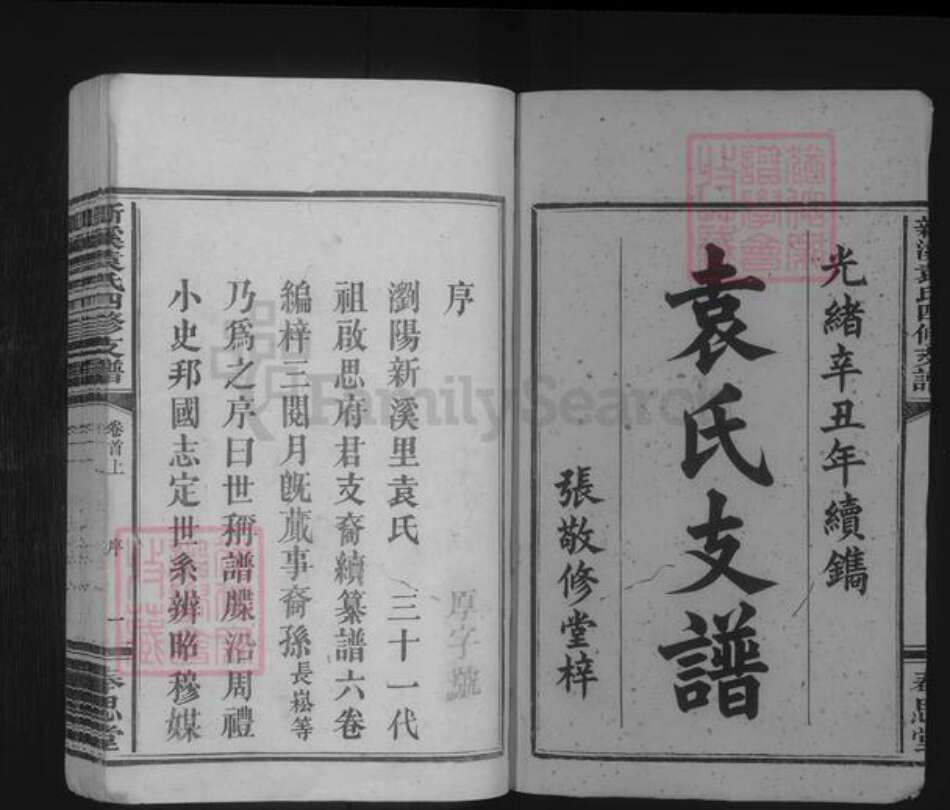 光緒辛丑年續鐫
袁氏支譜
張敬修堂梓
新溪袁氏四修支譜
奉思堂
序
厚字號
瀏陽新溪里袁氏 三十一代
祖啟思府君支裔續纂譜六卷
編梓三閱月旣蕆事裔孫長崧等
乃爲之序曰世稱譜牒沿周禮
小史邦國志定世系辨昭穆媒
新溪袁氏四修支譜
卷首上
序
一
奉思堂
FamilySearch